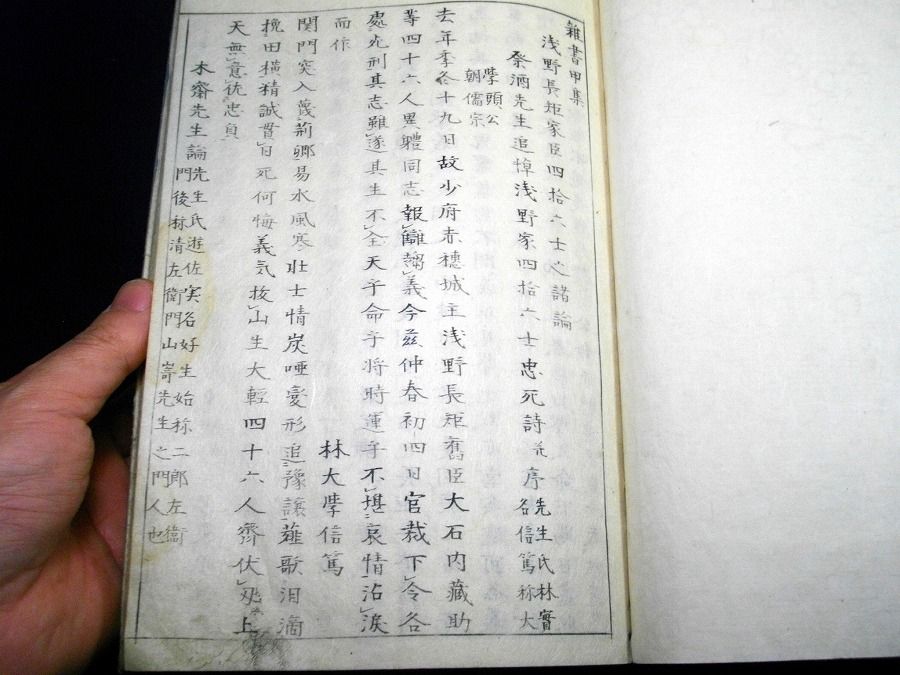 雜書甲集
浅野長矩家臣四拾六士之諸論
祭酒先生追悼浅野家四拾六士忠死詩并序 先生氏林實名信篤称大
學頭公朝儒宗
去年季冬十九日故少府赤穂城主浅野長矩旧臣大石内藏助
等四十六人異體同志報讎趨義今茲仲春初四日官裁下令各
處死刑其志雖遂其生不全天乎命乎将時運乎不堪哀情沾涙
而作
林大學信篤
関門突入蔑荊卿易水風寒壮士情炭唖変形追豫讓薤歌泪滴
挽田横精誠貫日死何悔義気抜山生大輕四十六人齊伏刃上
天無意佐忠貞
木齋先生論 先生氏遊佐実名好生始称二郎左衛
門後称清左衛門山嵜先生之門人也